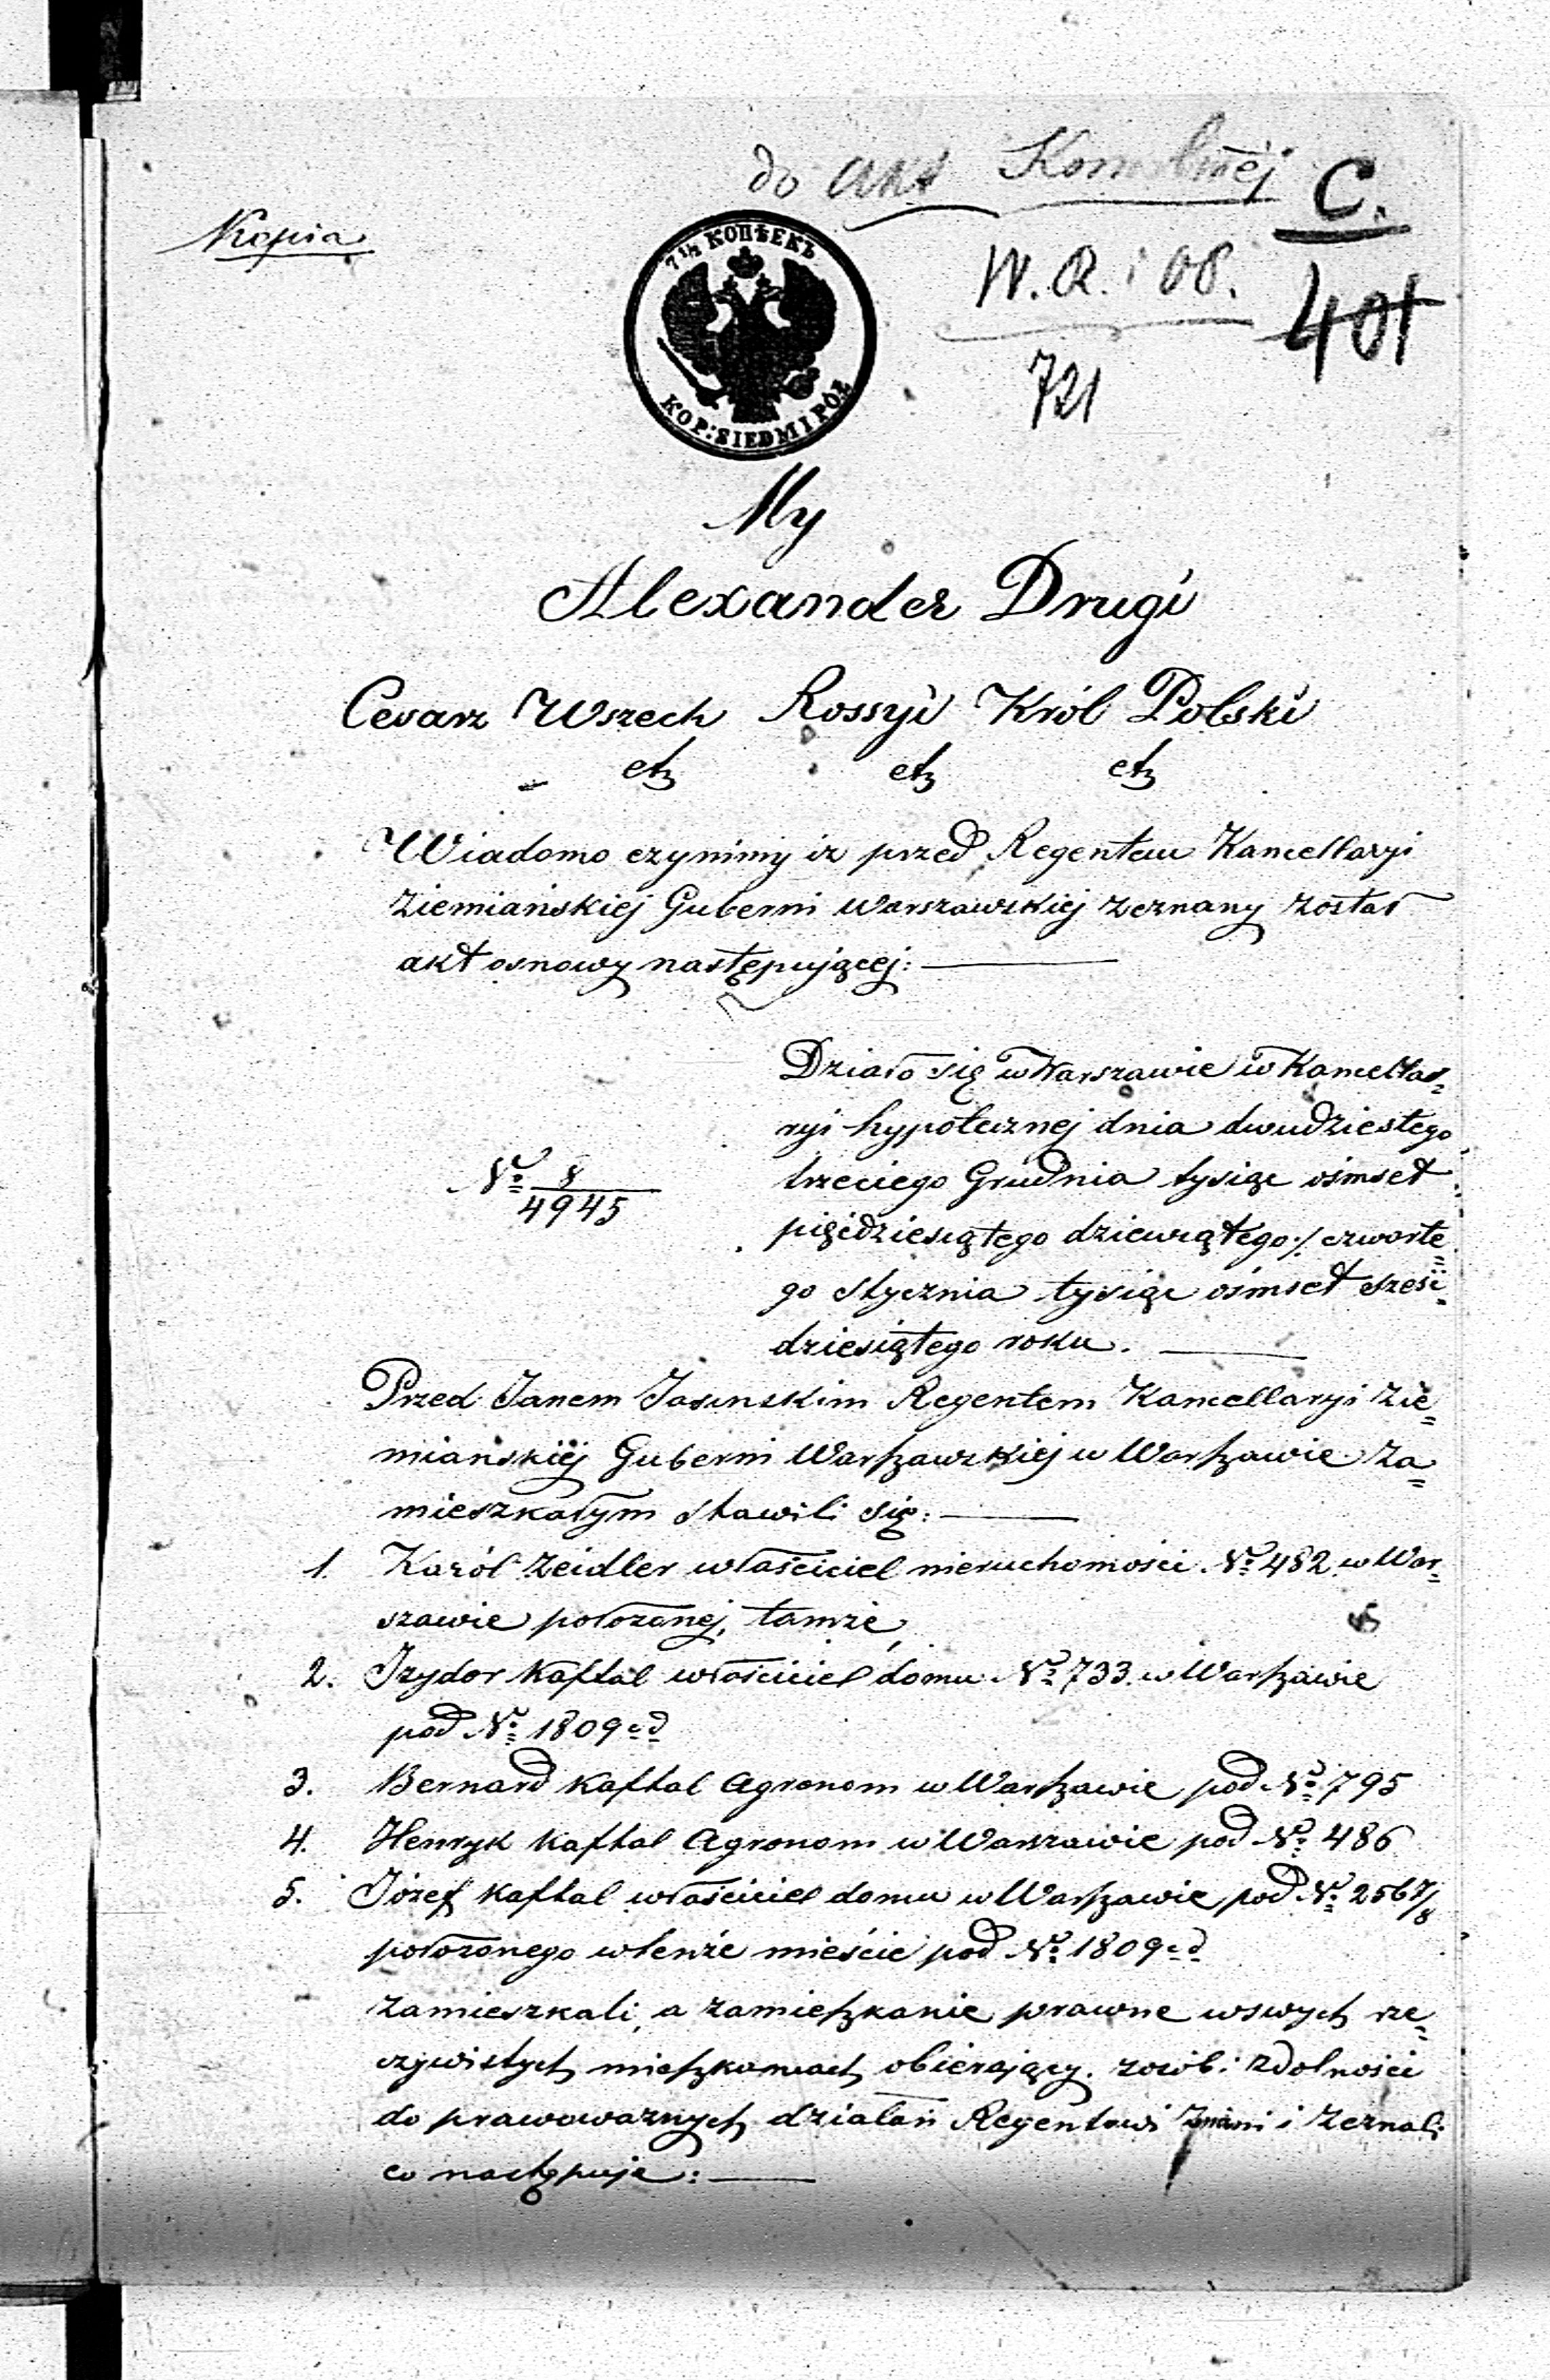 do akt
C.
Kopia
7½ КОПѢЕКЪ
KOP: SIEDM I PÓŁ
W. R. i 08.
401
721
My
Alexander Drugi
Cesarz Wszech Rossyi Król Polski
etz etz etz
Wiadomo czynimy iż przed Regentem Kancellaryi
Ziemiańskiej Guberni Warszawskiej zeznany został
akt osnowy następującej:
Działo się w Warszawie w Kancella=
ryi hypotecznej dnia dwudziestego
trzeciego Grudnia tysiąc ośmset
pięćdziesiątego dziewiątego / czwarte=
go Stycznia tysiąc ośmset sześć=
dziesiątego roku.
№ 8/4945
Przed Janem Jasinskim Regentem Kancellaryi Zie=
miańskiéj Guberni Warszawskiej w Warszawie za=
mieszkałym stawili się:
1. Karól Zeidler właściciel nieruchomości № 482 w War=
szawie położonej, tamże,
2. Izydor Kaftal właściciel domu № 733. w Warszawie
pod № 1809 cd
3. Bernard Kaftal Agronom w Warszawie pod № 795
4. Henryk Kaftal Agronom w Warszawie pod № 486
5. Józef Kaftal właściciel domu w Warszawie pod № 2567/8
położonego w tenże mieście pod № 1809 cd
zamieszkali, a zamieszkanie prawne w swych rze=
czywistych mieszkaniach obierający. z osób i zdolności
do prawoważnych działań Regentowi znani i zeznali
co następuje: